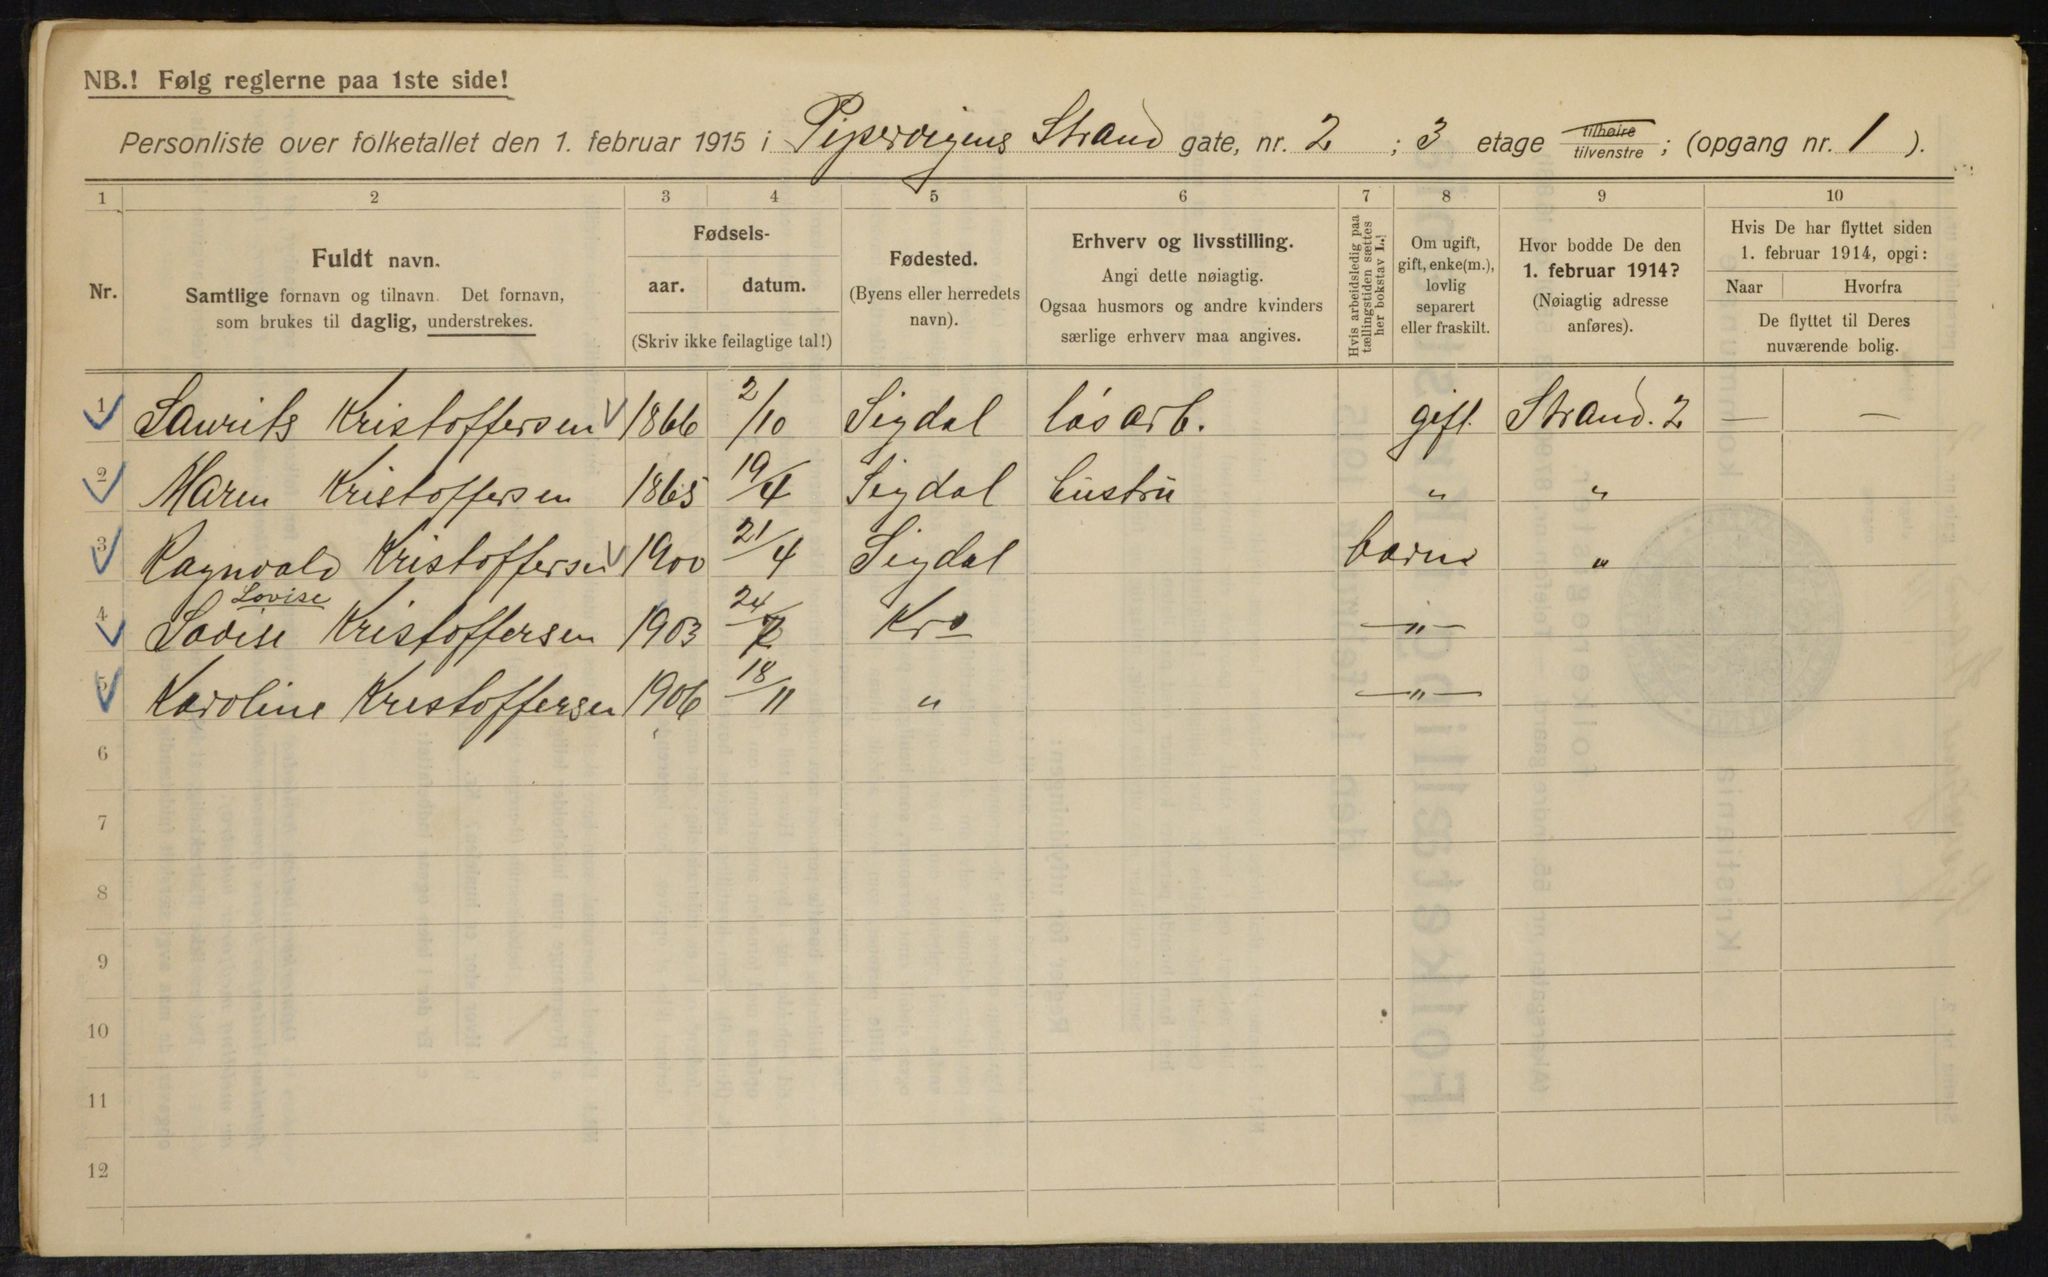 NB.! Følg reglerne paa 1ste side!
Personliste over folketallet den 1. februar 1915 i Pipervigens Strand gate, nr. 2 ; 3 etage tilhøire tilvenstre ; (opgang nr. 1 ).
1 2 3 4 5 6 7 8 9 10
Nr.
Fuldt navn.
Samtlige fornavn og tilnavn. Det fornavn,
som brukes til daglig, understrekes.
Fødsels-
aar. datum.
(Skriv ikke feilagtige tal!)
Fødested.
(Byens eller herredets
navn).
Erhverv og livsstilling.
Angi dette nøiagtig.
Ogsaa husmors og andre kvinders
særlige erhverv maa angives.
Hvis arbeidsledig paa
tællingstiden sættes
her bokstav L.!
Om ugift,
gift, enke(m.),
lovlig
separert
eller fraskilt.
Hvor bodde De den
1. februar 1914?
(Nøiagtig adresse
anføres).
Hvis De har flyttet siden
1. februar 1914, opgi:
Naar Hvorfra
De flyttet til Deres
nuværende bolig.
1 Laurits Kristoffersen 1866 2/10 Sigdal løsarb. gift Strand. 2 — —
2 Maren Kristoffersen 1865 19/4 Sigdal hustru " "
3 Ragnvald Kristoffersen 1900 21/4 Sigdal barn "
Lovise
4 Lovise Kristoffersen 1903 24/7 Kra —"—
5 Karoline Kristoffersen 1906 18/11 " —"—
6
7
8
9
10
11
12